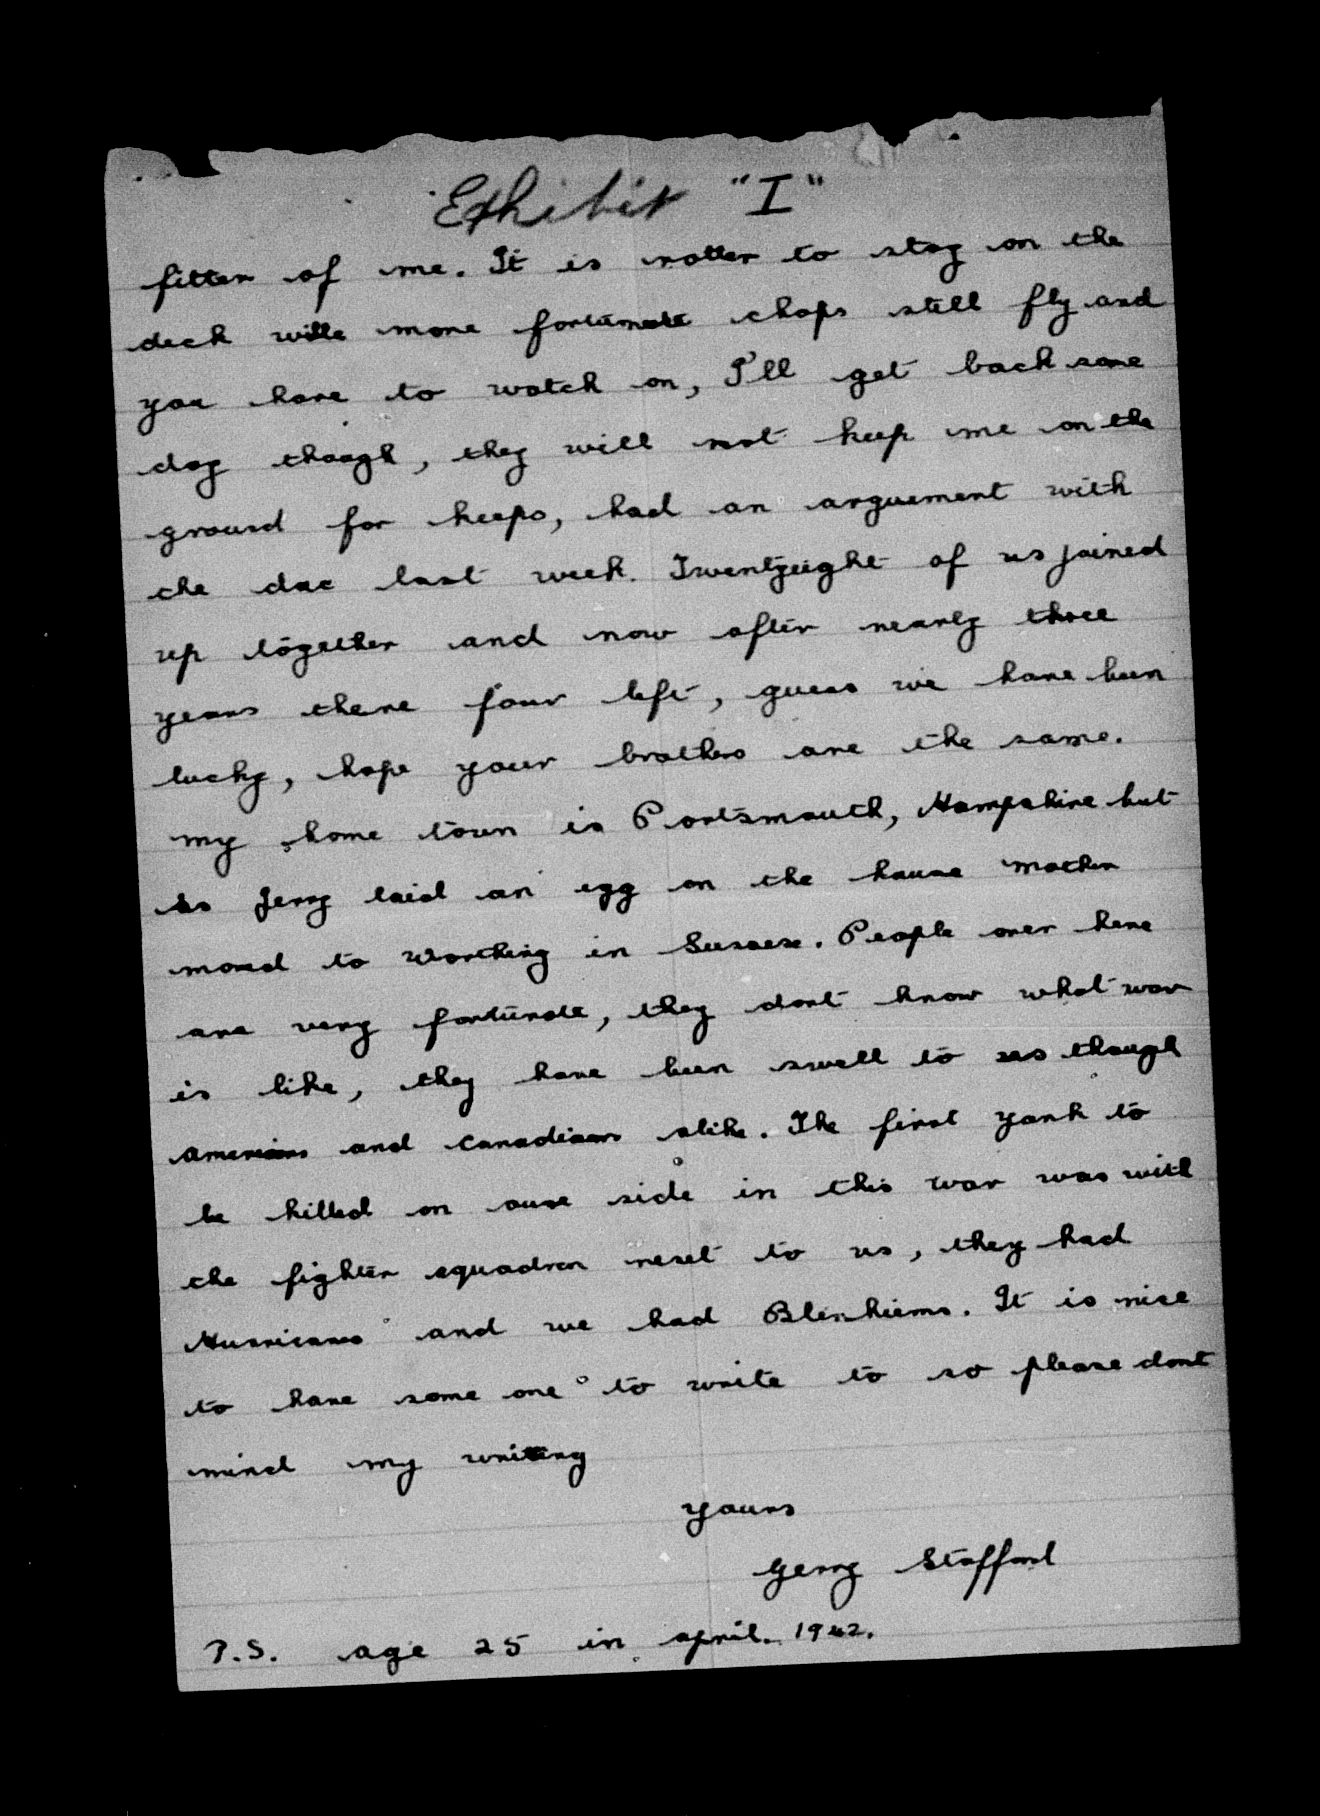 Exhibit "I"
fitter of me. It is rotten to stay on the
deck while more fortunate chaps still fly and
you have to watch on, I'll get back some
day though, they will not keep me on the
ground for keeps, had an arguement with
the doc last week. Twentyeight of us joined
up together and now after nearly three
years there four left, guess we have been
lucky, hope your brothers are the same.
my home town is Portsmouth, Hampshire but
as Jerry laid an egg on the house mother
moved to Worthing in Sussex. People over here
are very fortunate, they dont know what war
is like, they have been swell to us though
americans and canadians alike. The first yank to
be killed on our side in this war was with
the fighter squadron next to us, they had
Hurricanes and we had Blenhiems. It is nice
to have some one to write to so please dont
mind my writing
yours
Gerry Stafford
P.S. age 25 in april. 1942.